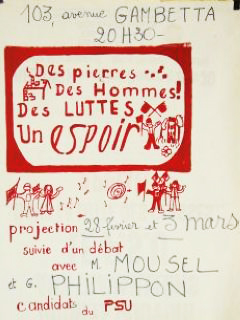 103, avenue GAMBETTA
20H30-
Des pierres
Des Hommes!
Des LUTTES
Un espoir
projection 28 février et 3 mars
suivie d'un débat
avec M. MOUSEL
et G. PHILIPPON
candidats du PSU